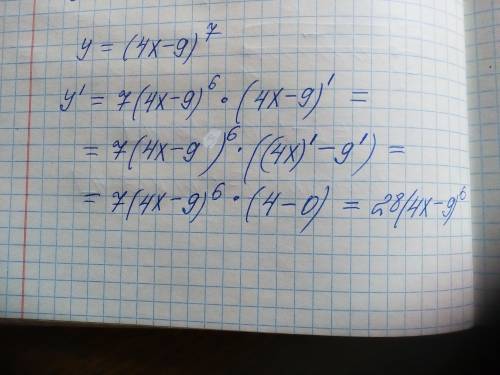 y = (4x-9)⁷
y' = 7(4x-9)⁶ · (4x-9)' =
= 7(4x-9)⁶ · ((4x)' - 9') =
= 7(4x-9)⁶ · (4-0) = 28(4x-9)⁶